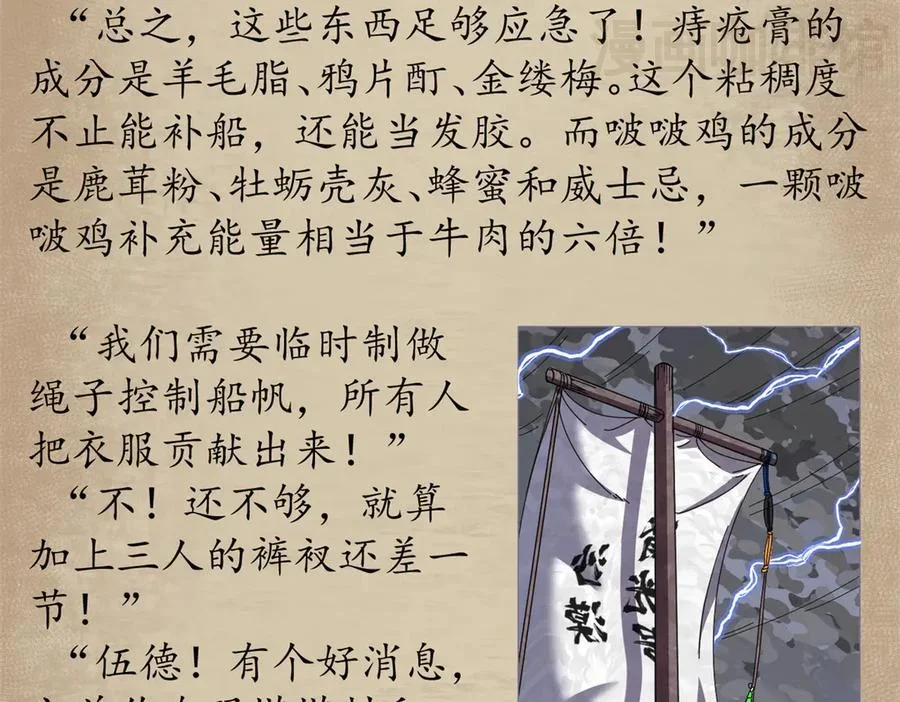 “总之，这些东西足够应急了！痔疮膏的
成分是羊毛脂、鸦片酊、金缕梅。这个粘稠度
不止能补船，还能当发胶。而啵啵鸡的成分
是鹿茸粉、牡蛎壳灰、蜂蜜和威士忌，一颗啵
啵鸡补充能量相当于牛肉的六倍！”
“我们需要临时制做
绳子控制船帆，所有人
把衣服贡献出来！”
“不！还不够，就算
加上三人的裤衩还差一
节！”
“伍德！有个好消息，